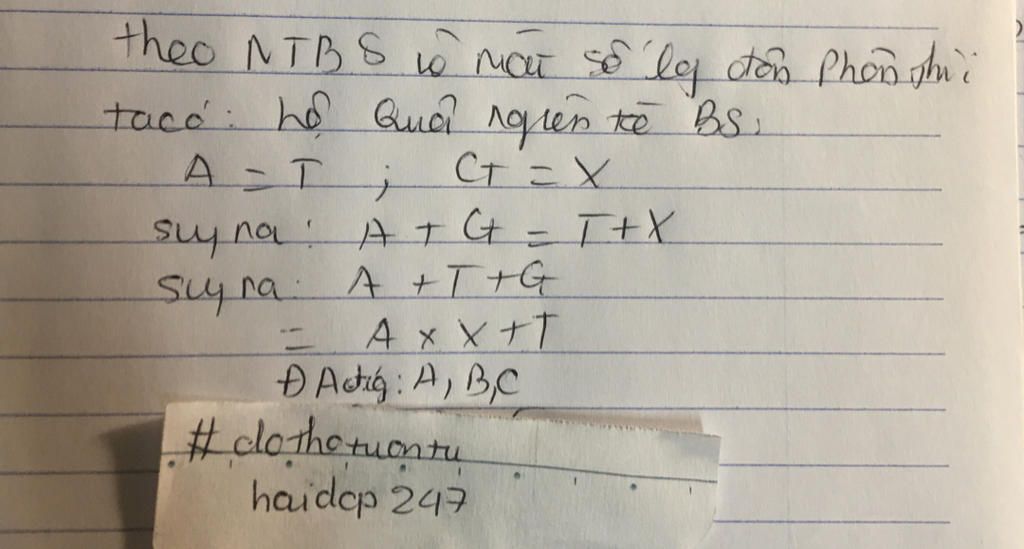 theo NTBS về mặt số lg đơn phân thì
ta có: hệ quả nguyên tắc BS:
A = T ; G = X
suy ra: A + G = T + X
suy ra: A + T + G
= A x X + T
ĐA đúg: A, B, C
#clothotuontu
haidcp 247